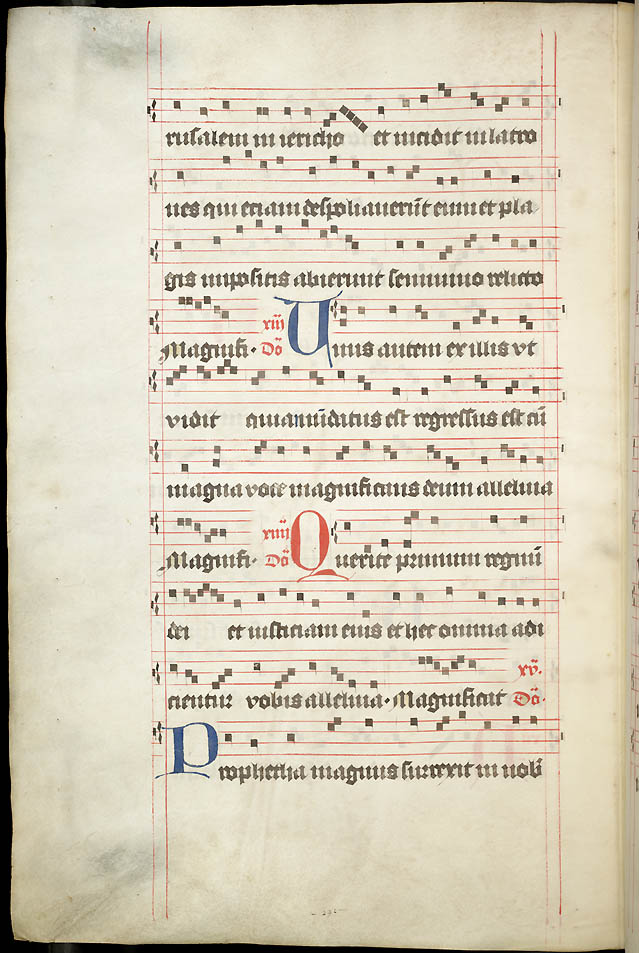 rusalem in iericho et incidit in latro
nes qui eciam despoliauerūt eum et pla
gis impositis abierunt seminiuo relicto
Magnifi. xiij Dō Unus autem ex illis vt
vidit quia mūdatus est regressus est cū
magna voce magnificans deum alleluia
Magnifi. xiiij Dō Querite primum regnū
dei et iusticiam eius et hec omnia adi
cientur vobis alleluia. Magnificat xv. Dō.
Prophetha magnus surrexit in nobi